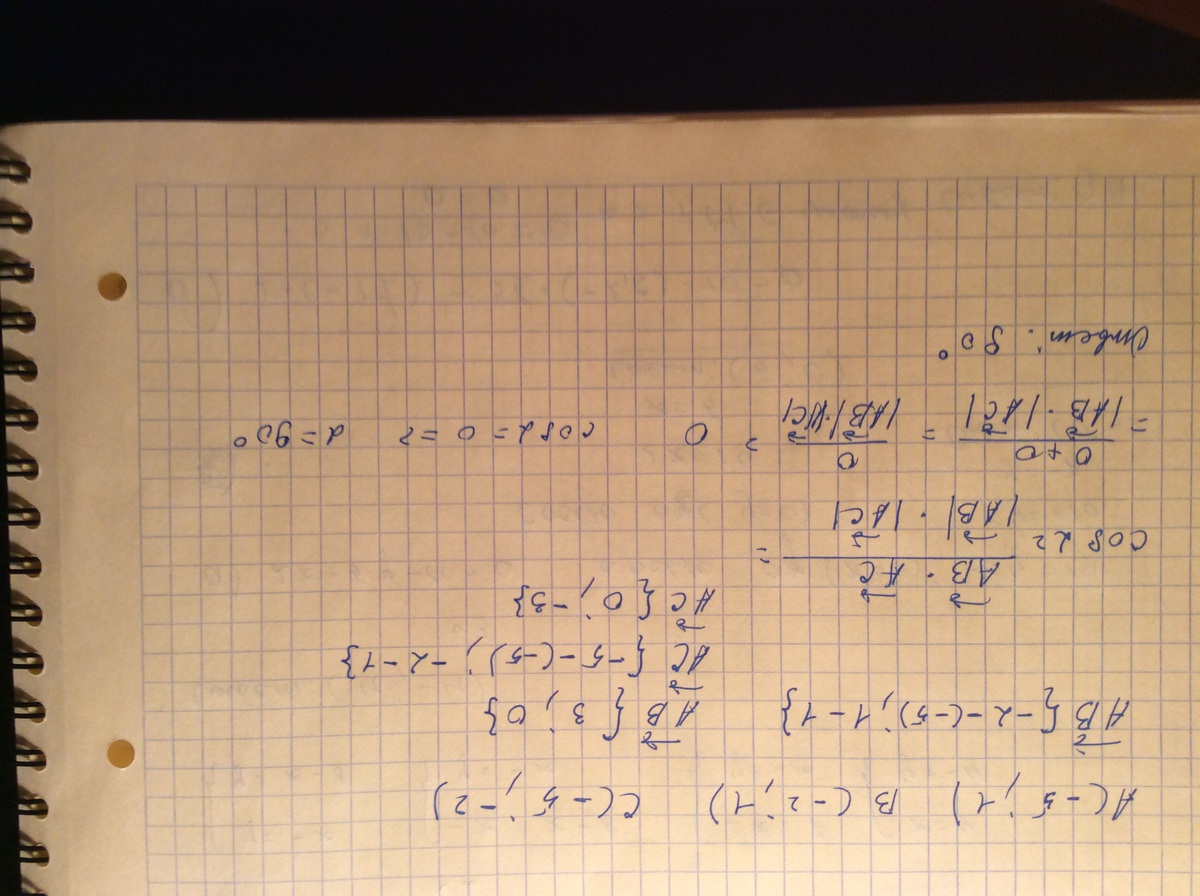 A(-5; 1) B(-2; 1) C(-5; -2)
AB→ {-2-(-5); 1-1} AB→ {3; 0}
AC→ {-5-(-5); -2-1}
AC→ {0; -3}
cos α = (AB→ · AC→) / (|AB→| · |AC→|) =
= (0+0) / (|AB→| · |AC→|) = 0 / (|AB→| · |AC→|) = 0 cos α = 0 => α = 90°
Ответ: 90°